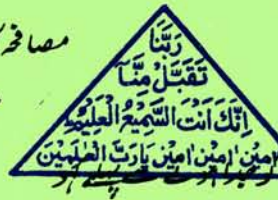 مصافحہ
رَبَّنَا
تَقَبَّلْ مِنَّآ
اِنَّكَ اَنْتَ السَّمِيْعُ الْعَلِيْمُ
اٰمِيْن اٰمِيْن اٰمِيْن يَارَبَّ الْعٰلَمِيْن